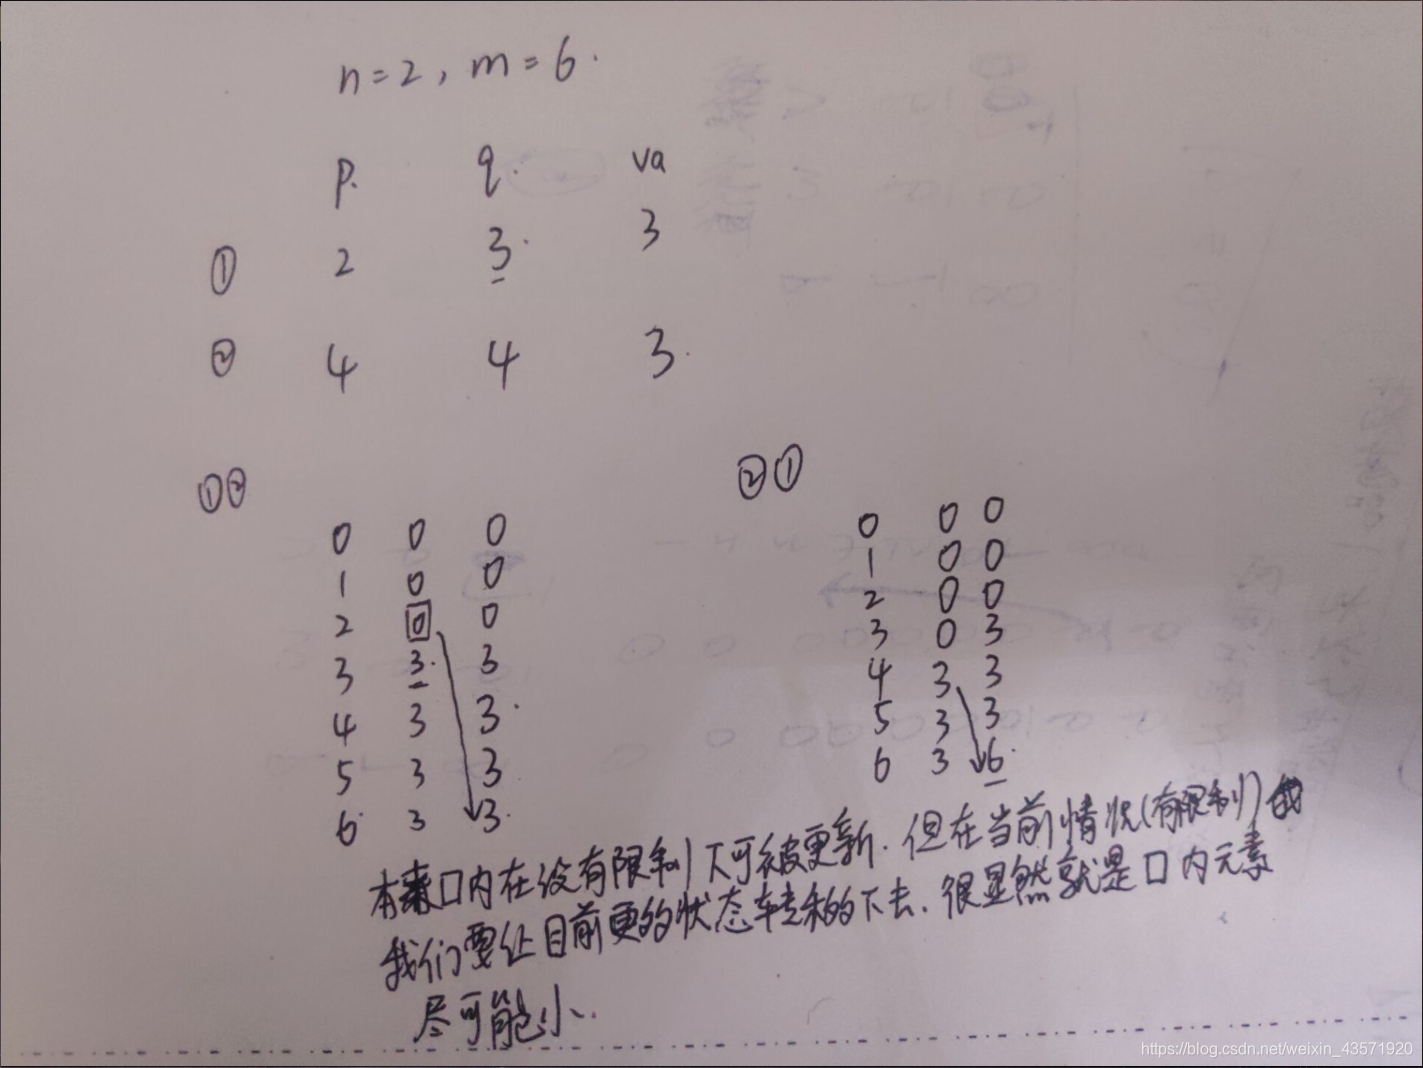 n=2, m=6.
p. q. va
① 2 3. 3
② 4 4 3.
①② ②①
0 0 0 0 0 0
1 0 0 1 0 0
2 0 0 2 0 0
3 3. 3 3 0 3
4 3 3. 4 3 3
5 3 3. 5 3 3
6 3 3. 6 3 6.
本来口内在没有限制下可被更新.但在当前情况(有限制)
我们要让目前更的状态转移的下去.很显然就是口内元素
尽可能小.
https://blog.csdn.net/weixin_43571920